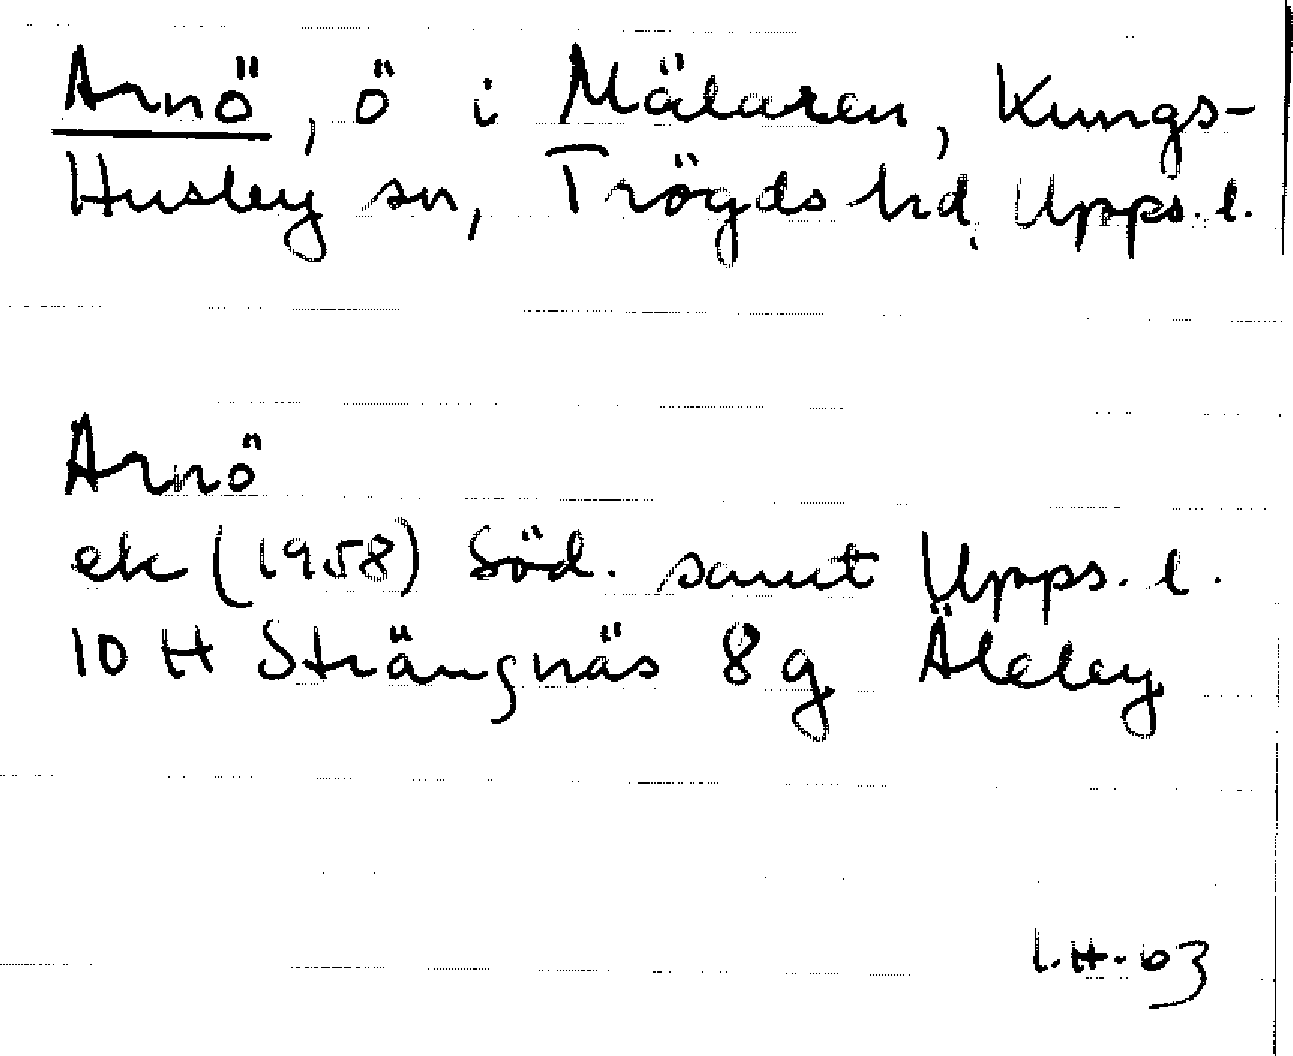 Arnö, ö i Mälaren, Kungs-
Husby sn, Trögds hd, Upps. l.
Arnö
ek (1958) Söd. samt Upps. l.
10 H Strängnäs 8 g Äleby
L.H. 03